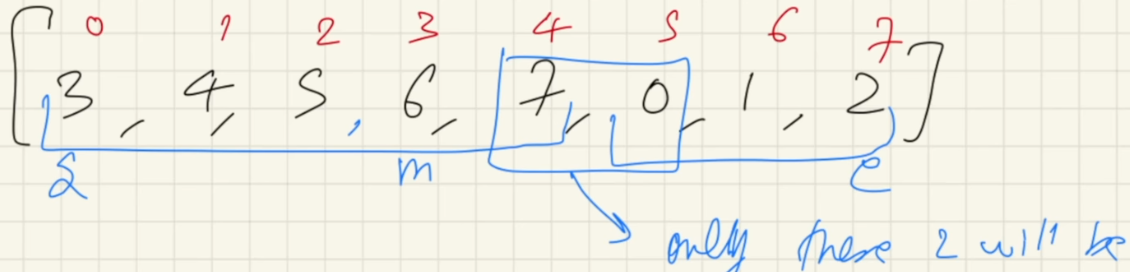 0 1 2 3 4 5 6 7
[3, 4, 5, 6, 7, 0, 1, 2]
S m e
only these 2 will be